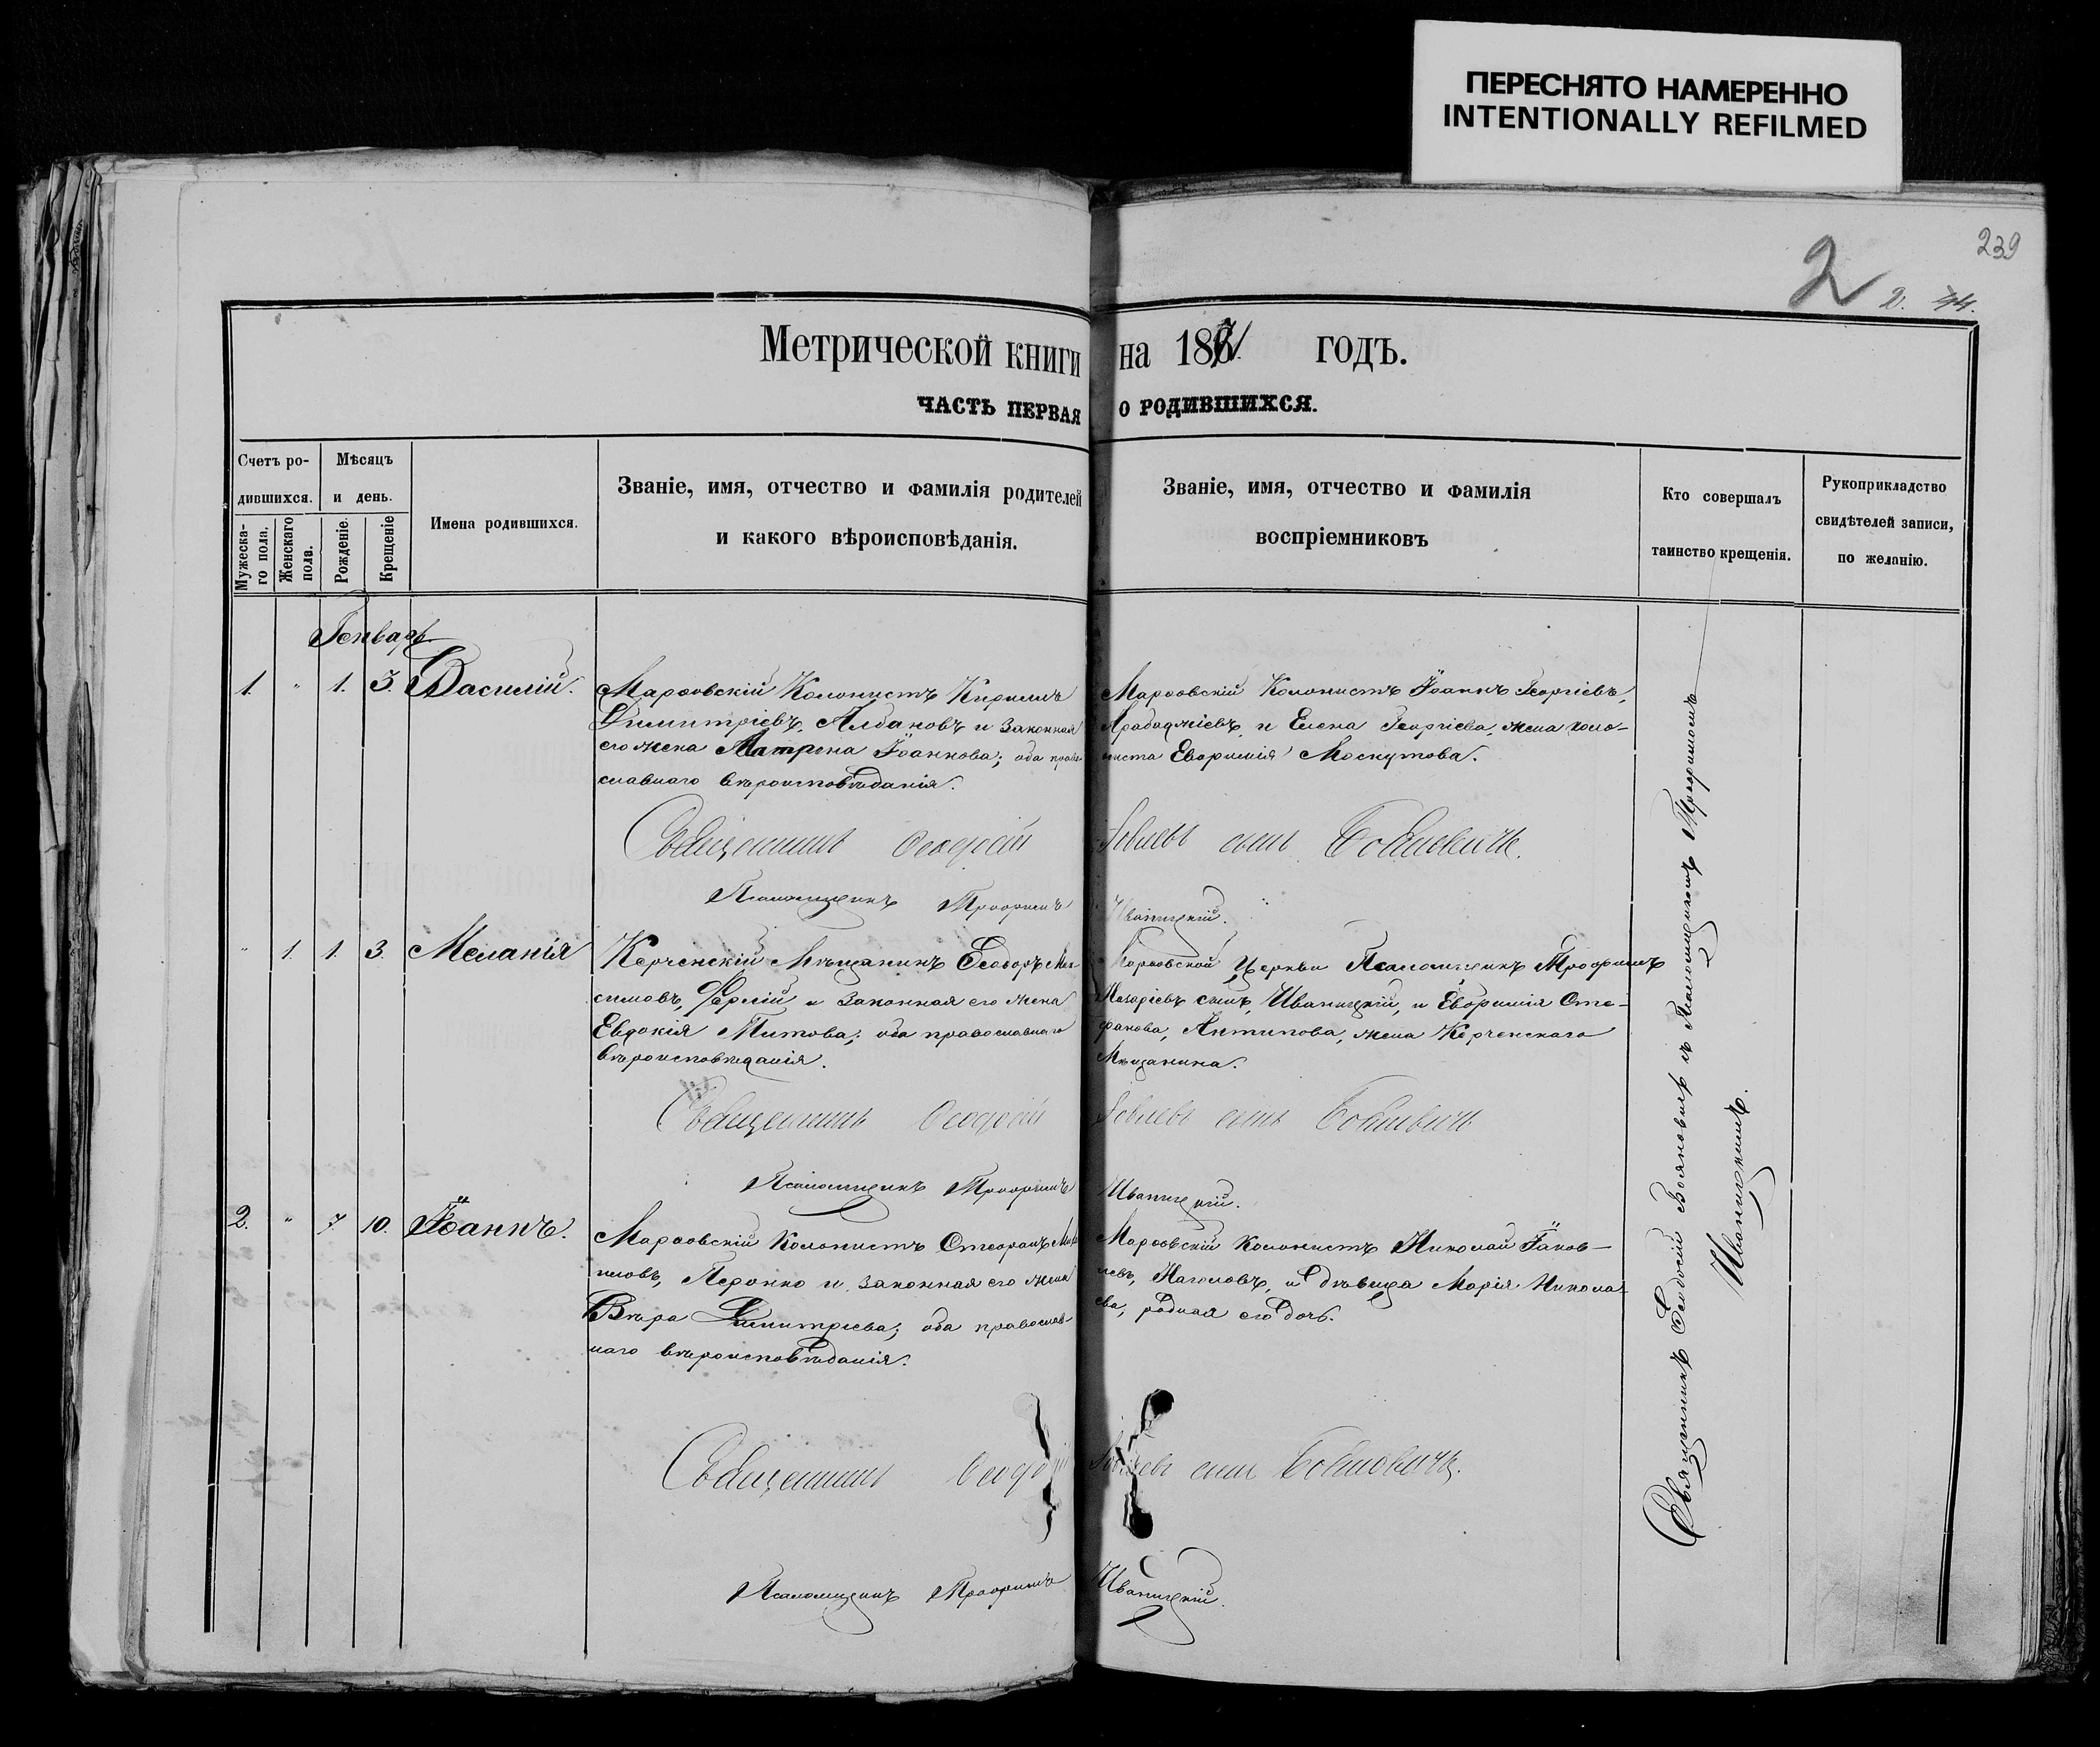 ПЕРЕСНЯТО НАМЕРЕННО
INTENTIONALLY REFILMED
239
2
2.
Метрической книги на 187 годъ.
ЧАСТЬ ПЕРВАЯ О РОДИВШИХСЯ.
Счетъ родившихся.
Мужескаго пола.
Женскаго пола.
Мѣсяцъ и день.
Рожденіе.
Крещеніе
Имена родившихся.
Званіе, имя, отчество и фамилія родителей
и какого вѣроисповѣданія.
Званіе, имя, отчество и фамилія
воспріемниковъ
Кто совершалъ
таинство крещенія.
Рукоприкладство
свидѣтелей записи,
по желанію.
Генварь
1. " 1. 3. Василій.
Марѳовскій Колонистъ Кириллъ
Димитріевъ, Алдановъ и законная
его жена Матрона Іоаннова; оба право-
славнаго вѣроисповѣданія.
Марѳовскій Колонистъ Іоаннъ Георгіевъ,
Арабаджіевъ, и Елена Георгіева, жена коло-
ниста Евфимія Москутова.
Священникъ Ѳеодосій Іовлевъ сынъ
Псаломщикъ Трофимъ Иваницкій.
" 1. 1. 3. Меланія
Керченскій Мѣщанинъ Ѳеодоръ Мак-
симовъ, и законная его жена
Евдокія Титова; оба православнаго
вѣроисповѣданія.
Марѳовской Церкви Псаломщикъ Трофимъ
Назаріевъ сынъ, Иваницкій, и Евфимія Сте-
фанова, Антипова, жена Керченскаго
Мѣщанина.
Священникъ Ѳеодосій Іовлевъ сынъ
Псаломщикъ Трофимъ Иваницкій.
2. " 7. 10. Іоаннъ.
Марѳовскій Колонистъ Стефанъ
и законная его жена
Вѣра Димитріева; оба православ-
наго вѣроисповѣданія.
Марѳовскій Колонистъ Николай Іаков-
левъ, Наголовъ, и дѣвица Марія Никола-
ева, родная его дочь.
Священникъ Ѳеодосій Іовлевъ сынъ
Псаломщикъ Трофимъ Иваницкій.
Священникъ Ѳеодосій съ Псаломщикомъ Трофимомъ
Иваницкимъ.